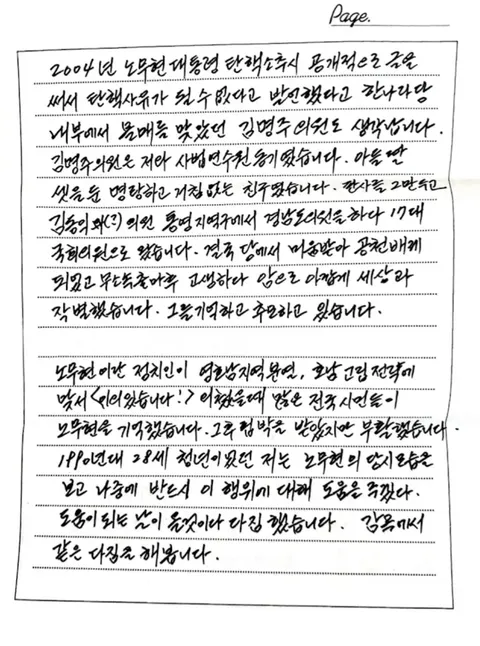 Page.
2004년 노무현 대통령 탄핵소추시 공개적으로 글을
써서 탄핵사유가 될 수 없다고 발언했다고 한나라당
내부에서 몰매를 맞았던 김명주 의원도 생각납니다.
김명주 의원은 저와 사법연수원 동기였습니다. 아들 딸
셋을 둔 명랑하고 거침없는 친구였습니다. 판사를 그만두고
김동욱 와(?) 의원 통영지역구에서 경남도의원을 하다 17대
국회의원으로 왔습니다. 결국 당에서 미움받아 공천배제
되었고 무소속 출마후 고생하다 암으로 아깝게 세상과
작별했습니다. 그를 기억하고 추모하고 있습니다.
노무현이란 정치인이 영호남지역분열, 호남고립전략에
맞서 <이의있습니다!> 외쳤을때 많은 전국시민들이
노무현을 기억했습니다. 그후 핍박을 받았지만 부활했습니다.
1990년대 28세 청년이었던 저는 노무현의 당시모습을
보고 나중에 반드시 이 행위에 대해 도움을 주겠다.
도움이 되는 날이 올것이다 다짐했습니다. 감옥에서
같은 다짐을 해봅니다.